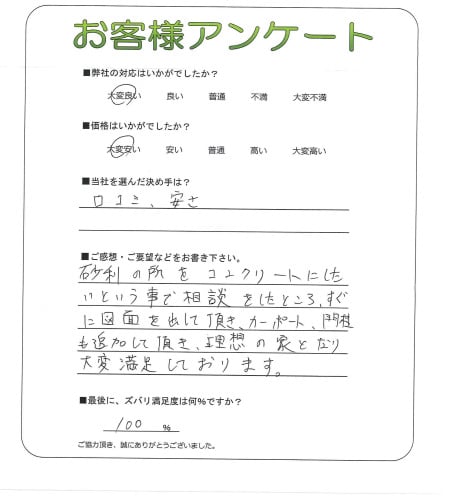 お客様アンケート
■弊社の対応はいかがでしたか?
大変良い 良い 普通 不満 大変不満
■価格はいかがでしたか?
大変安い 安い 普通 高い 大変高い
■当社を選んだ決め手は?
口コミ、安さ
■ご感想・ご要望などをお書き下さい。
砂利の所をコンクリートにした
いという事で相談をしたところ、すぐ
に図面を出して頂き、カーポート、門柱
も追加して頂き、理想の家となり
大変満足しております。
■最後に、ズバリ満足度は何%ですか?
100 %
ご協力頂き、誠にありがとうございました。